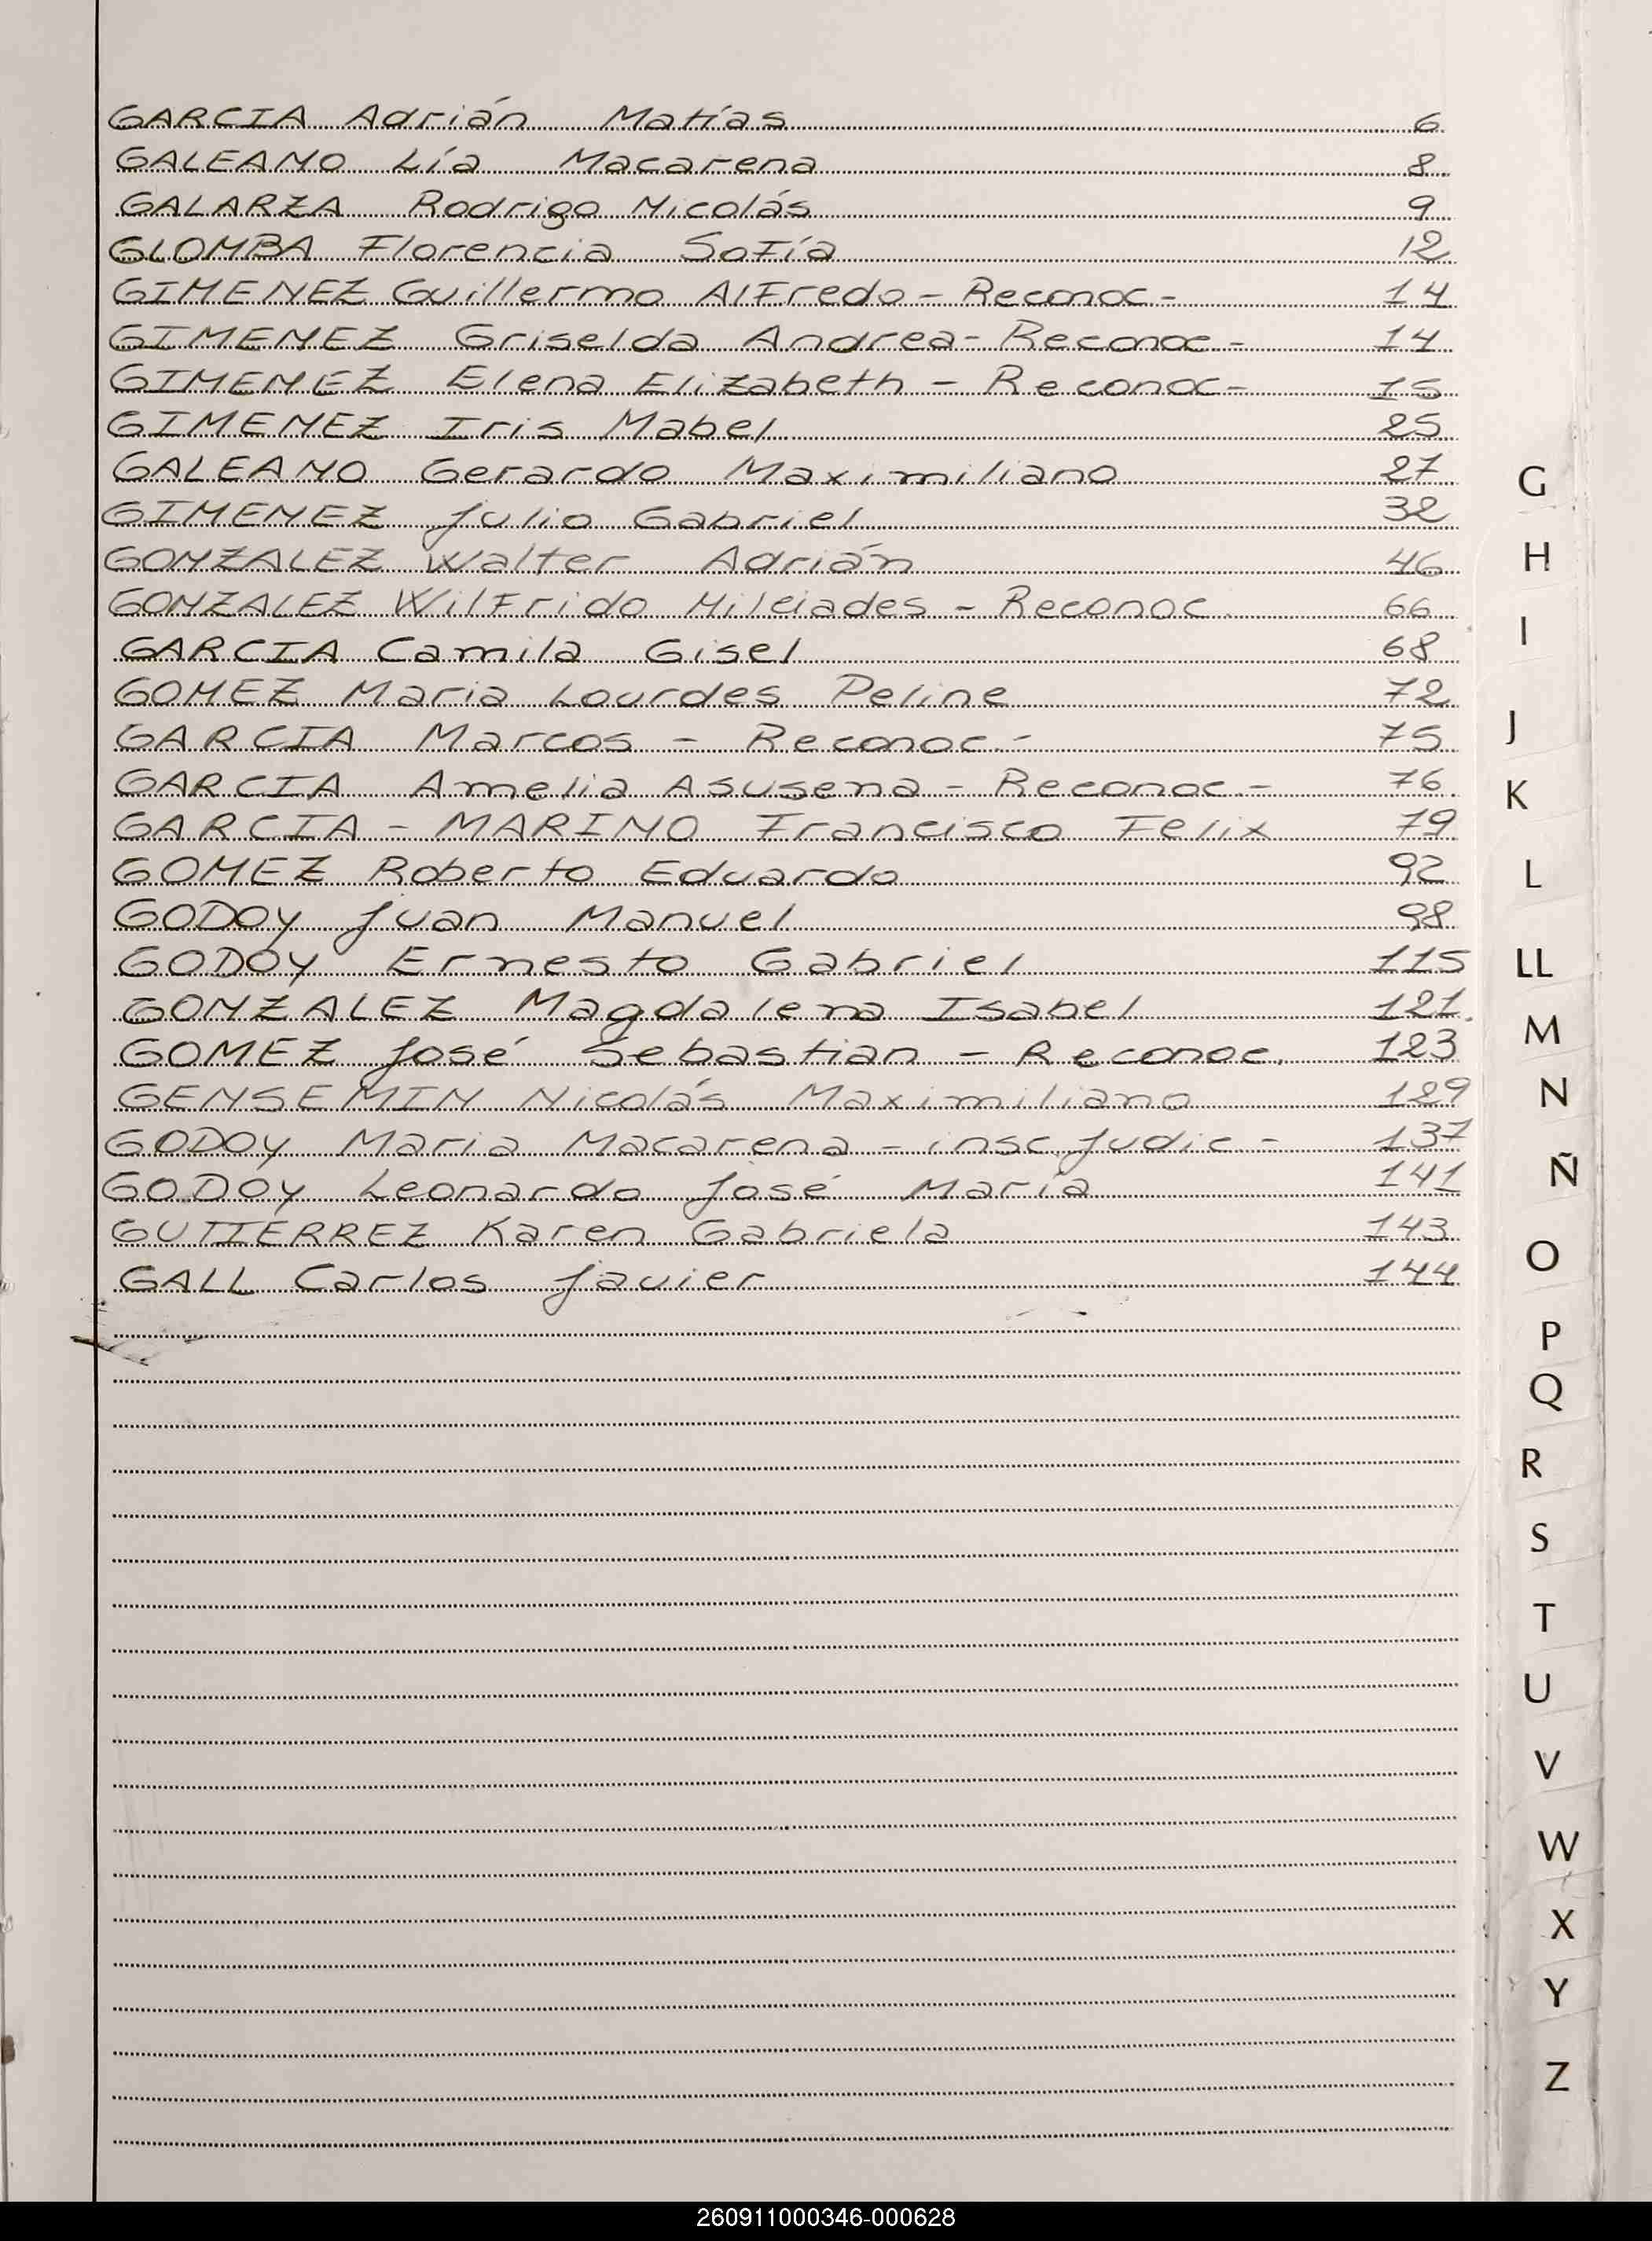 GARCIA Adrián Matías 6
GALEANO Lía Macarena 8
GALARZA Rodrigo Nicolás 9
GLOMBA Florencia Sofía 12
GIMENEZ Guillermo Alfredo - Reconoc - 14
GIMENEZ Griselda Andrea - Reconoc - 14
GIMENEZ Elena Elizabeth - Reconoc - 15
GIMENEZ Iris Mabel 25
GALEANO Gerardo Maximiliano 27
GIMENEZ Julio Gabriel 32
GONZALEZ Walter Adrián 46
GONZALEZ Wilfrido Mileiades - Reconoc. 66
GARCIA Camila Gisel 68
GOMEZ Maria Lourdes Peline 72
GARCIA Marcos - Reconoc.- 75
GARCIA Amelia Asusena - Reconoc.- 76
GARCIA - MARINO Francisco Felix 79
GOMEZ Roberto Eduardo 92
GODOY Juan Manuel 98
GODOY Ernesto Gabriel 115
GONZALEZ Magdalena Isabel 121
GOMEZ José Sebastian - Reconoc. 123
GENSEMIN Nicolás Maximiliano 129
GODOY Maria Macarena - insc Judic - 137
GODOY Leonardo José María 141
GUTIERREZ Karen Gabriela 143
GALL Carlos Javier 144
G
H
I
J
K
L
LL
M
N
Ñ
O
P
Q
R
S
T
U
V
W
X
Y
Z
260911000346-000628